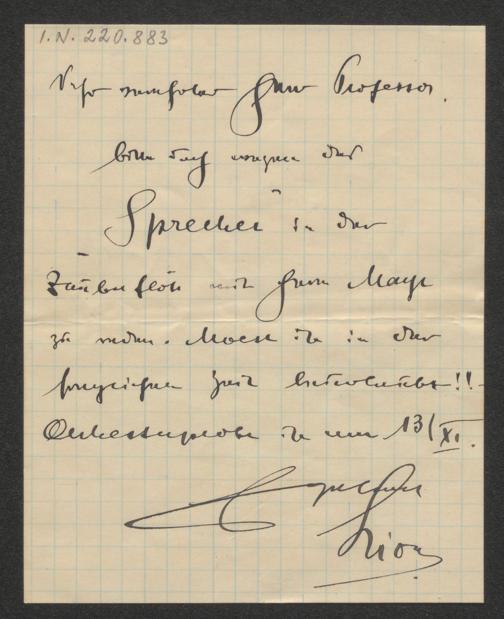 I.N. 220.883
Sehr verehrter Herr Professor.
bitte doch wegen des
Sprecher" in der
Zauberflöte mit Herrn Mayr
zu reden. Moest ist in der
fraglichen Zeit beurlaubt!!
Orchesterprobe ist am 13/XI.